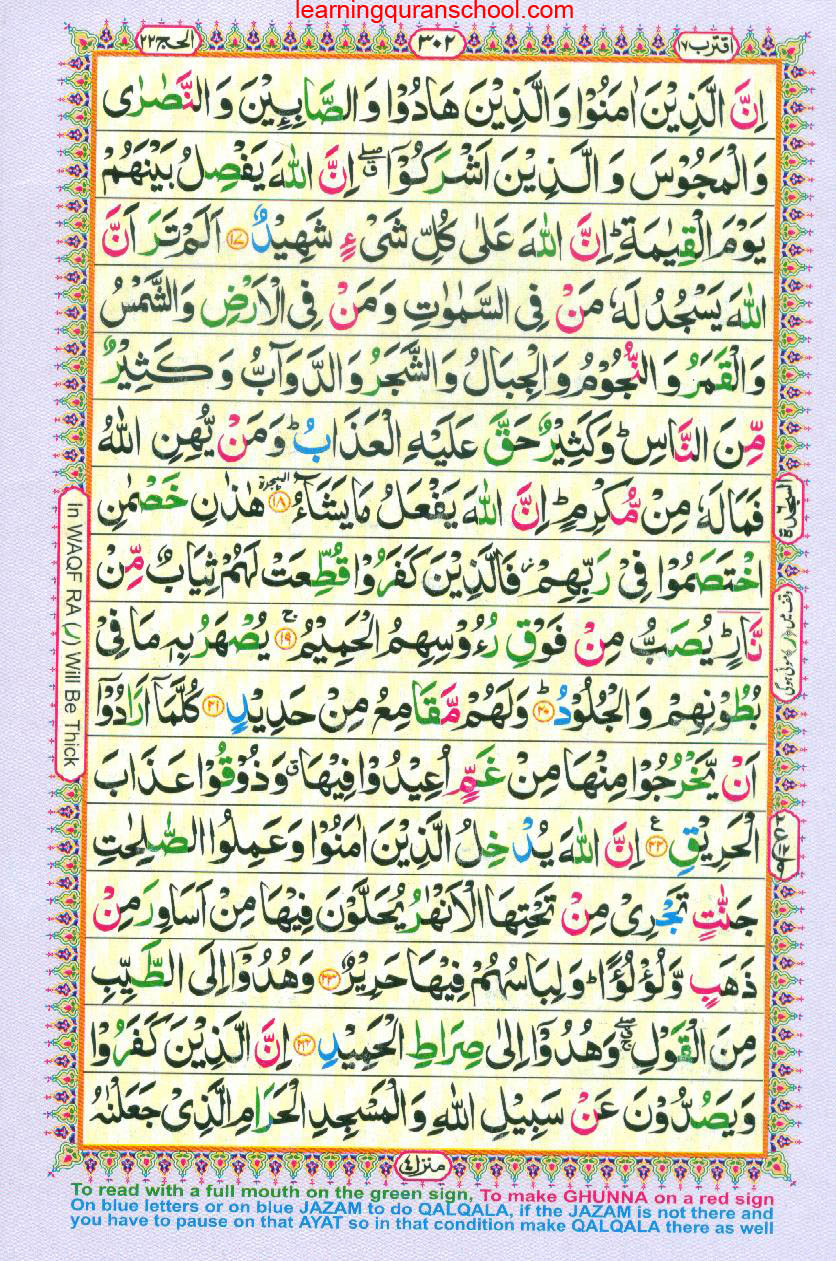 learningquranschool.com
اقترب ١٧
٣٠٢
الحج ٢٢
اِنَّ الَّذِيْنَ اٰمَنُوْا وَالَّذِيْنَ هَادُوْا وَالصَّابِـِٕيْنَ وَالنَّصٰرٰى
وَالْمَجُوْسَ وَالَّذِيْنَ اَشْرَكُوْۤا ۖۗ اِنَّ اللّٰهَ يَفْصِلُ بَيْنَهُمْ
يَوْمَ الْقِيٰمَةِ ؕ اِنَّ اللّٰهَ عَلٰى كُلِّ شَىْءٍ شَهِيْدٌ ۝۱۷ اَلَمْ تَرَ اَنَّ
اللّٰهَ يَسْجُدُ لَهٗ مَنْ فِى السَّمٰوٰتِ وَمَنْ فِى الْاَرْضِ وَالشَّمْسُ
وَالْقَمَرُ وَالنُّجُوْمُ وَالْجِبَالُ وَالشَّجَرُ وَالدَّوَآبُّ وَكَثِيْرٌ
مِّنَ النَّاسِ ؕ وَكَثِيْرٌ حَقَّ عَلَيْهِ الْعَذَابُ ؕ وَمَنْ يُّهِنِ اللّٰهُ
فَمَا لَهٗ مِنْ مُّكْرِمٍ ؕ اِنَّ اللّٰهَ يَفْعَلُ مَا يَشَآءُ ۝۱۸ السجدة هٰذٰنِ خَصْمٰنِ
اخْتَصَمُوْا فِىْ رَبِّهِمْ ؗ فَالَّذِيْنَ كَفَرُوْا قُطِّعَتْ لَهُمْ ثِيَابٌ مِّنْ
نَّارٍ ؕ يُصَبُّ مِنْ فَوْقِ رُءُوْسِهِمُ الْحَمِيْمُ ۝۱۹ۚ يُصْهَرُ بِهٖ مَا فِىْ
بُطُوْنِهِمْ وَالْجُلُوْدُ ۝۲۰ؕ وَلَهُمْ مَّقَامِعُ مِنْ حَدِيْدٍ ۝۲۱ كُلَّمَاۤ اَرَادُوْۤا
اَنْ يَّخْرُجُوْا مِنْهَا مِنْ غَمٍّ اُعِيْدُوْا فِيْهَا ۗ وَذُوْقُوْا عَذَابَ
الْحَرِيْقِ ۝۲۲ع اِنَّ اللّٰهَ يُدْخِلُ الَّذِيْنَ اٰمَنُوْا وَعَمِلُوا الصّٰلِحٰتِ
جَنّٰتٍ تَجْرِىْ مِنْ تَحْتِهَا الْاَنْهٰرُ يُحَلَّوْنَ فِيْهَا مِنْ اَسَاوِرَ مِنْ
ذَهَبٍ وَّلُؤْلُؤًا ؕ وَلِبَاسُهُمْ فِيْهَا حَرِيْرٌ ۝۲۳ وَهُدُوْۤا اِلَى الطَّيِّبِ
مِنَ الْقَوْلِ ۖۚ وَهُدُوْۤا اِلٰى صِرَاطِ الْحَمِيْدِ ۝۲۴ اِنَّ الَّذِيْنَ كَفَرُوْا
وَيَصُدُّوْنَ عَنْ سَبِيْلِ اللّٰهِ وَالْمَسْجِدِ الْحَرَامِ الَّذِىْ جَعَلْنٰهُ
السجدة
In WAQF RA (ر) Will Be Thick
منزل ٤
To read with a full mouth on the green sign, To make GHUNNA on a red sign
On blue letters or on blue JAZAM to do QALQALA, if the JAZAM is not there and
you have to pause on that AYAT so in that condition make QALQALA there as well